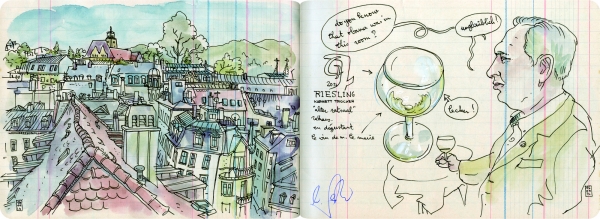 do you know
that obama was in
this room?
unglaublich!
RIESLING
KABINETT TROCKEN
en dégustant
le vin de m. le maire
lecker!